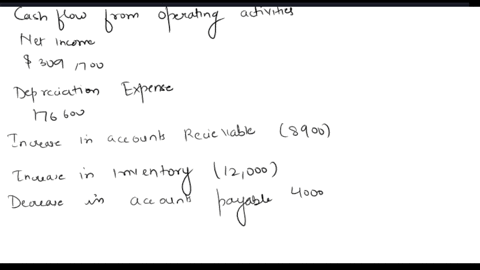 Cash flow from operating activities
Net income
$ 309,700
Depreciation Expense
176600
Increase in accounts Recievable (8900)
Increase in Inventory (12,000)
Decrease in accounts payable 4000